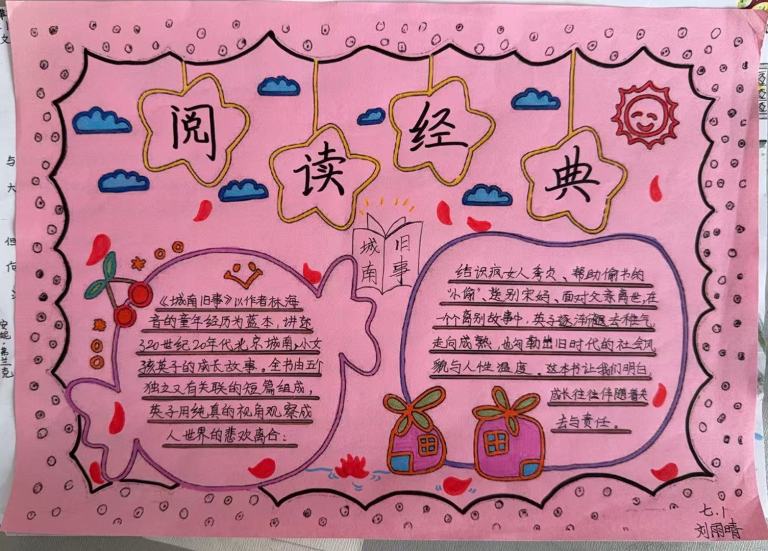 阅读经典
城南旧事
《城南旧事》以作者林海
音的童年经历为蓝本，讲述
了20世纪20年代北京城南，小女
孩英子的成长故事。全书由五个
独立又有关联的短篇组成，
英子用纯真的视角观察成
人世界的悲欢离合：
结识疯女人秀贞、帮助偷书的
"小偷"、送别宋妈、面对父亲离世，在
一个个离别故事中，英子逐渐褪去稚气
走向成熟，也勾勒出旧时代的社会风
貌与人性温度。这本书让我们明白，
成长往往伴随着失
去与责任。
七.1
刘雨晴